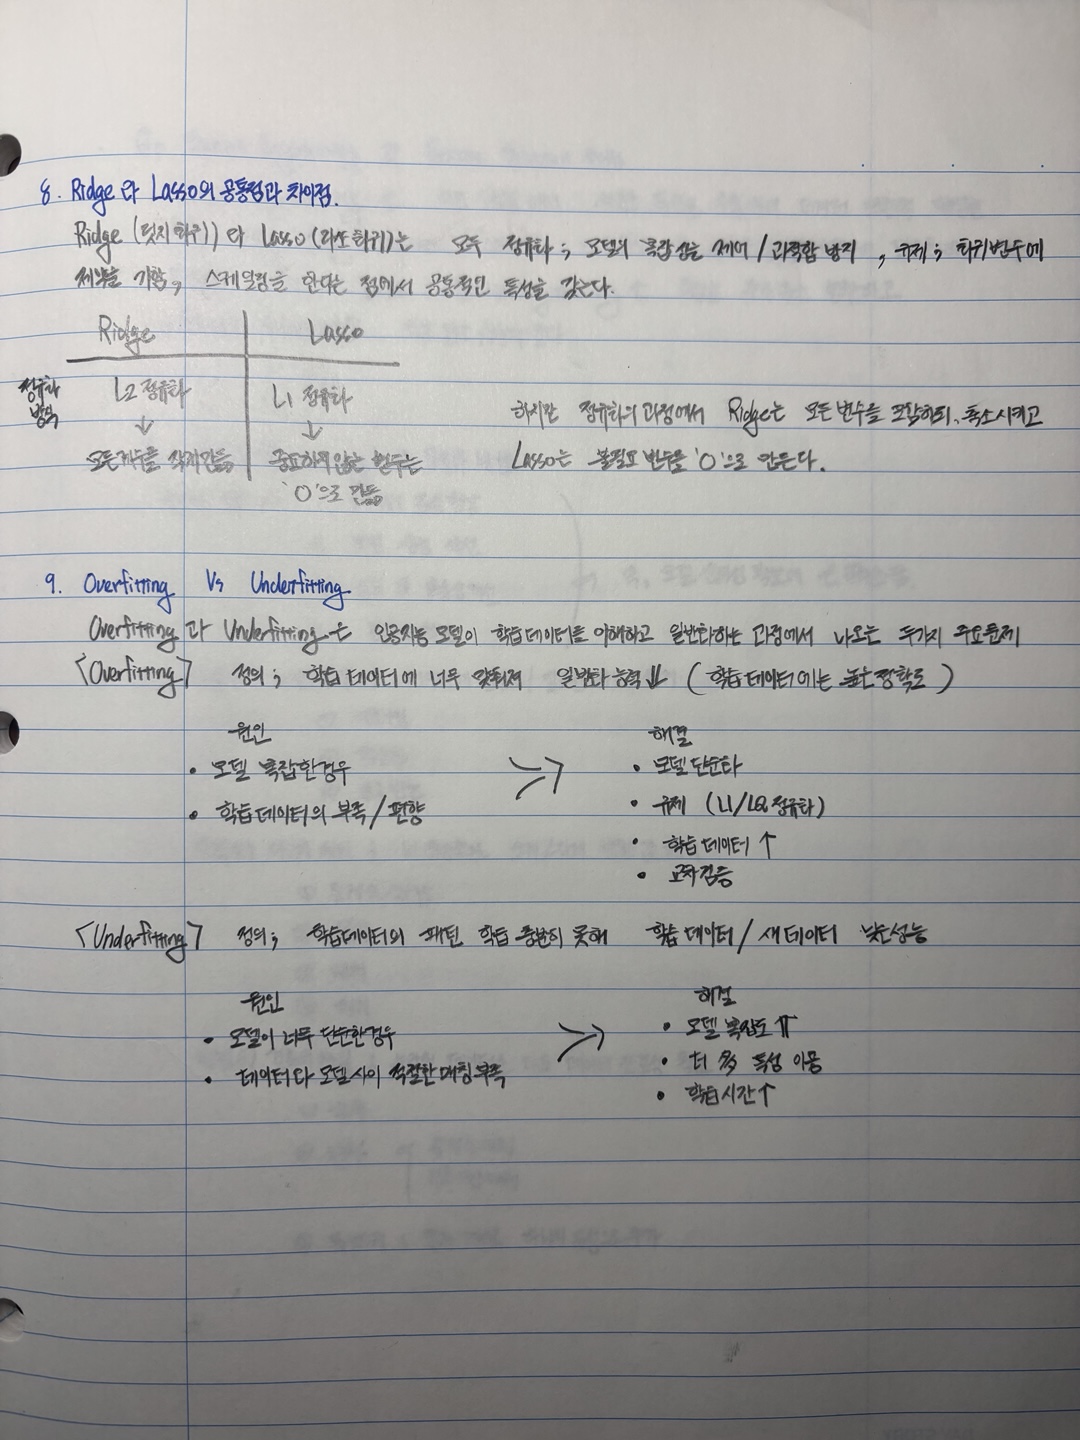 8. Ridge와 Lasso의 공통점과 차이점.
Ridge (릿지회귀)와 Lasso (라쏘회귀)는 모두 정규화; 모델의 복잡성을 제어/과적합 방지, 규제; 회귀변수에
제약을 가함, 스케일링을 한다는 점에서 공통적인 특성을 갖는다.
Ridge Lasso
정규화 방식
L2 정규화 L1 정규화
↓ ↓
모든계수를 작게만듦 중요하지않는 변수는
'0'으로 만듦
하지만 정규화의 과정에서 Ridge는 모든변수를 포함하되, 축소시키고
Lasso는 불필요 변수를 '0'으로 만든다.
9. Overfitting Vs Underfitting
Overfitting과 Underfitting은 인공지능 모델이 학습데이터를 이해하고 일반화하는 과정에서 나오는 두가지 주요문제
<Overfitting> 정의; 학습데이터에 너무 맞춰져 일반화 능력⇓ (학습데이터에는 높은정확도)
원인 해결
• 모델 복잡한경우
• 학습데이터의 부족/편향
• 모델단순화
• 규제 (L1/L2정규화)
• 학습 데이터↑
• 교차검증
<Underfitting> 정의; 학습데이터의 패턴 학습 충분히 못해 학습데이터/새데이터 낮은성능
원인 해결
• 모델이 너무 단순한경우
• 데이터와 모델사이 적절한 매칭부족
• 모델 복잡도⇑
• 더 多 특성 이용
• 학습시간↑